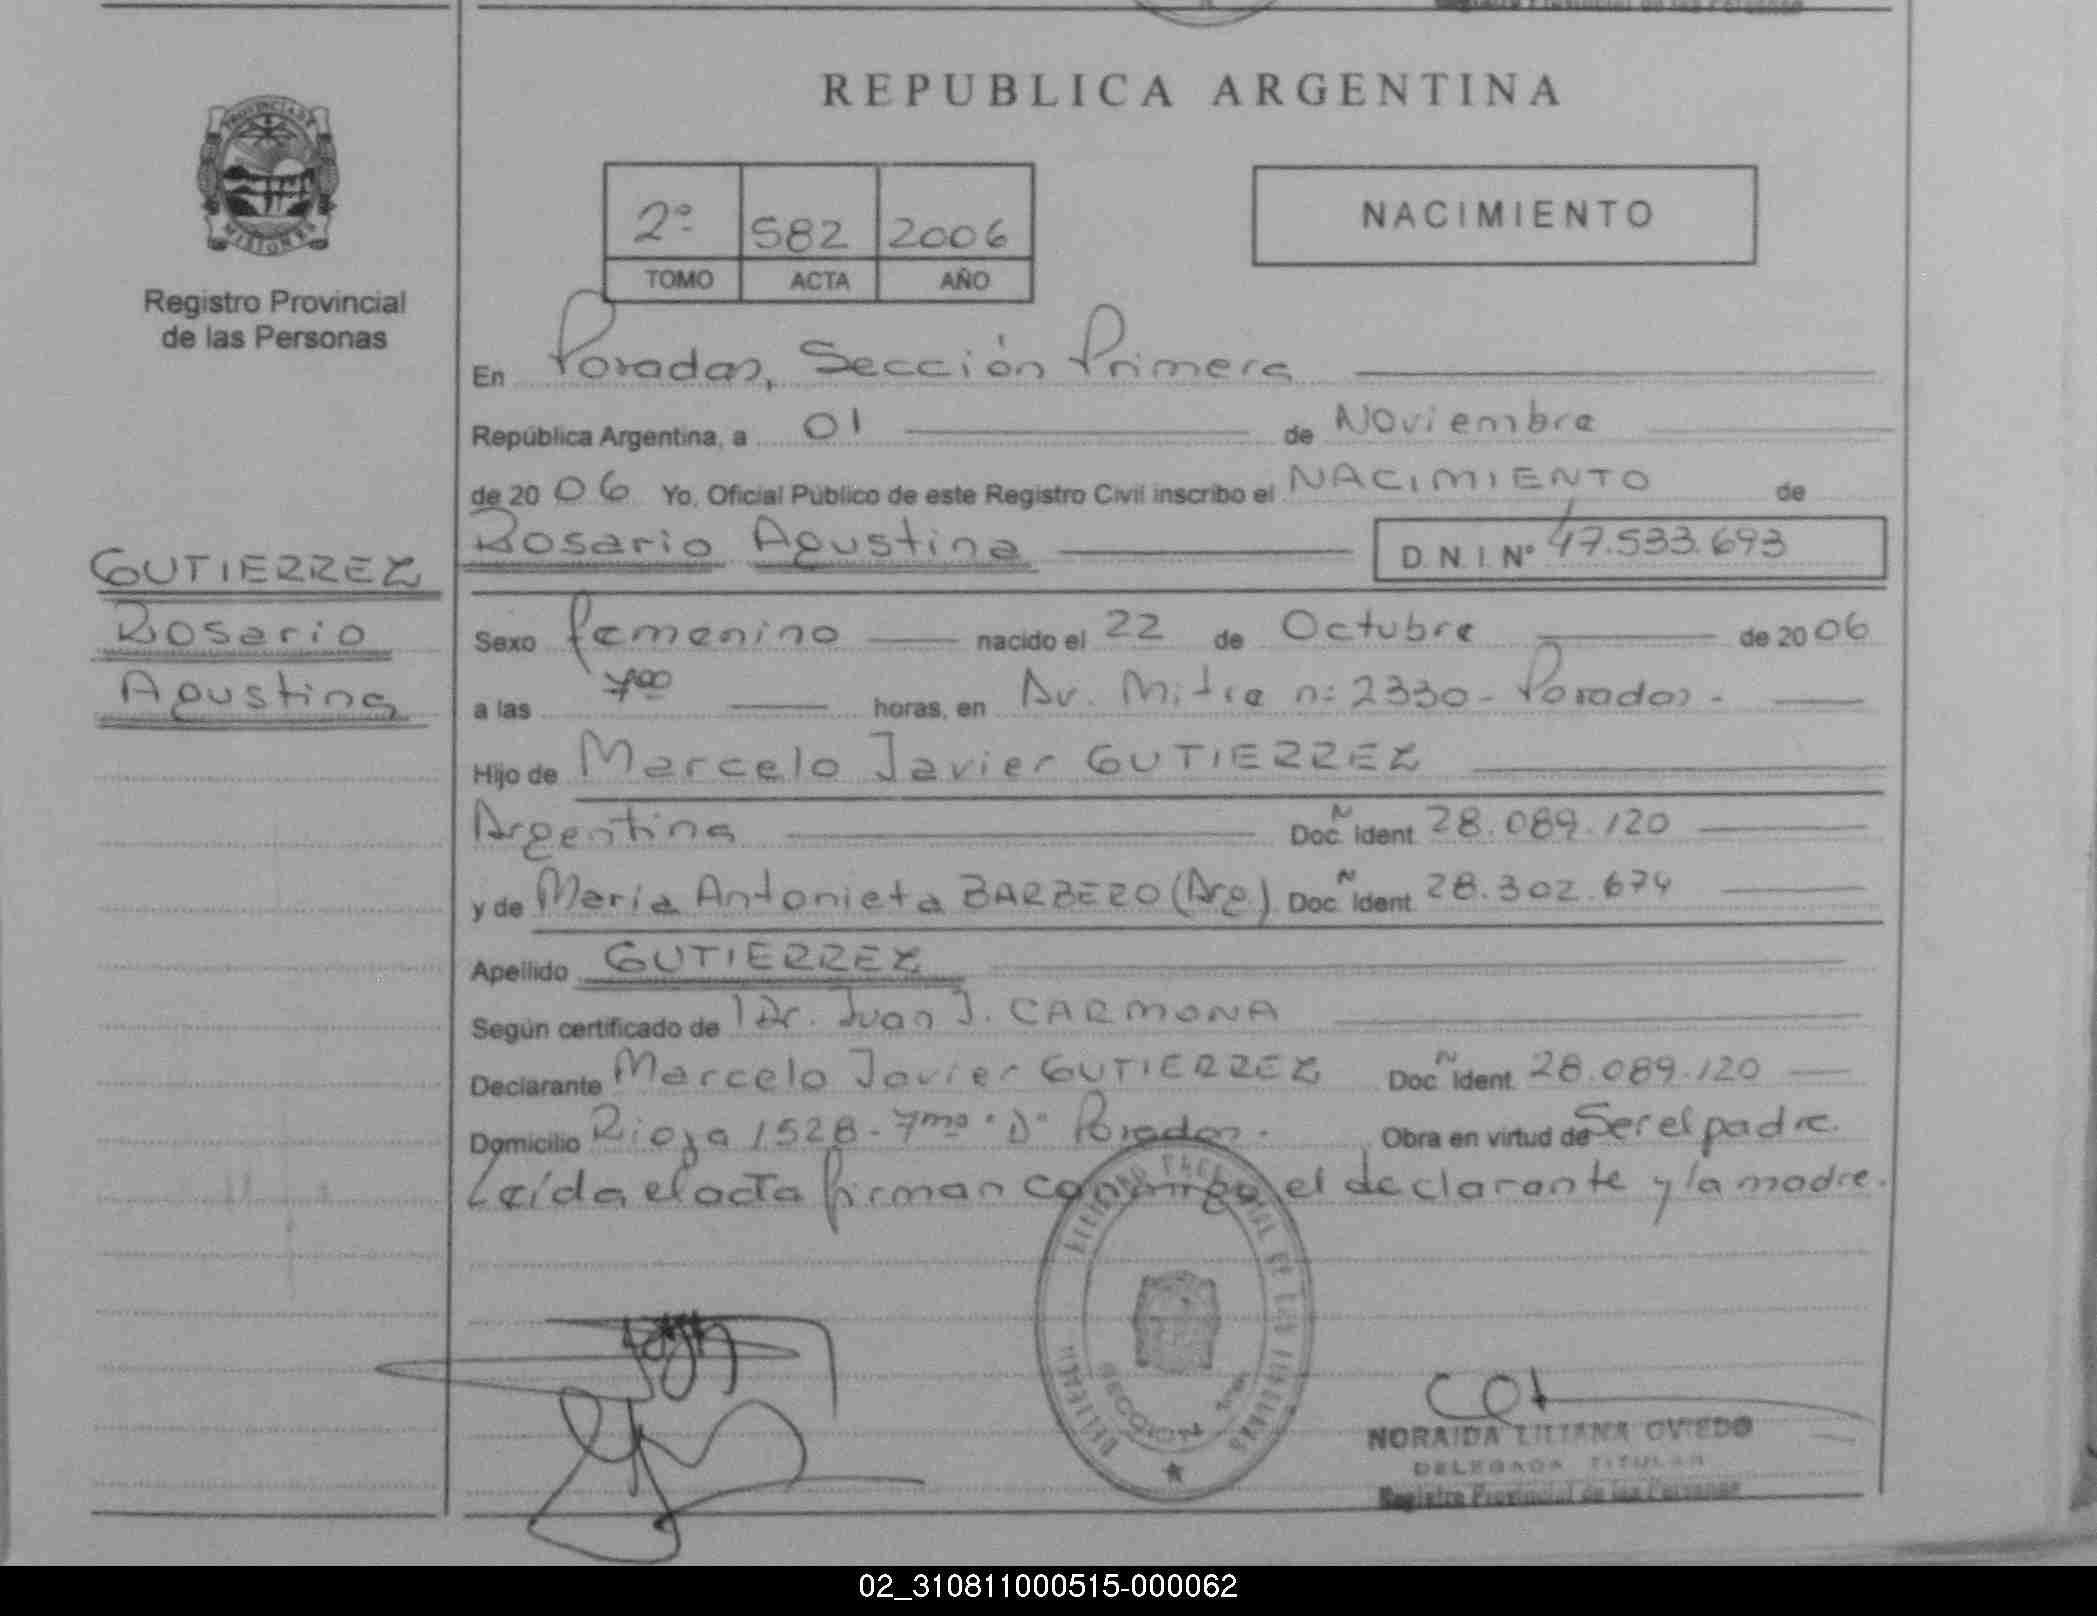 REPUBLICA ARGENTINA
PROVINCIA DE
MISIONES
Registro Provincial
de las Personas
2º 582 2006
TOMO ACTA AÑO
NACIMIENTO
En Posadas, Sección Primera
República Argentina, a 01 de Noviembre
de 2006 Yo, Oficial Público de este Registro Civil inscribo el NACIMIENTO de
Rosario Agustina D.N.I.Nº 47.533.693
GUTIERREZ
Rosario
Agustina
Sexo femenino nacido el 22 de Octubre de 2006
a las 7⁰⁰ horas, en Av. Mitre nº 2330 - Posadas -
Hijo de Marcelo Javier GUTIERREZ
Argentina Doc. Ident. 28.089.120
y de María Antonieta BARBERO (Arg) Doc. Ident. 28.302.674
Apellido GUTIERREZ
Según certificado de Dr. Juan J. CARMONA
Declarante Marcelo Javier GUTIERREZ Doc. Ident. 28.089.120
Domicilio Rioja 1528 - 7mo "D" Posadas. Obra en virtud de Ser el padre.
Leída el acta firman conmigo el declarante y la madre.
SECCION 1RA
NORAIDA LILIANA OVIEDO
DELEGADA TITULAR
Registro Provincial de las Personas
02_310811000515-000062